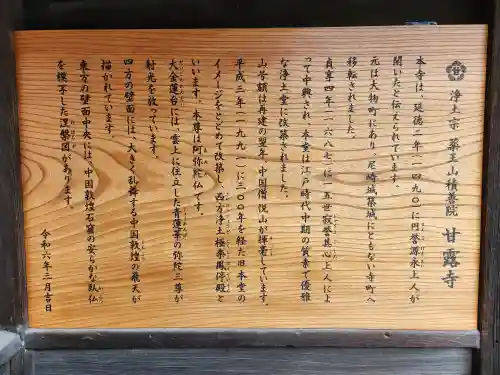 浄土宗 薬王山積善院 甘露寺
本寺は、延徳二年(一四九〇)に円誉源永上人が
開いたと伝えられています。
元は大物町にあり、尼崎城築城にともない寺町へ
移転されました。
貞享四年(一六八七)に一五世寂誉真心上人によ
って中興され、本堂は江戸時代中期の質素で優雅
な浄土堂に改築されました。
山号額は再建の翌年、中国僧悦山が揮毫しています。
平成三年(一九九一)に三〇〇年を経た旧本堂の
イメージをとどめて改築し、西方浄土極楽鳳停殿と
いいます。本尊は阿弥陀仏です。
大金蓮台には、雲上に住立した青蓮華の弥陀三尊が
射光を放っています。
四方の壁面には、大きく乱舞する中国敦煌の飛天が
描かれています。
東方の壁面中央には、中国敦煌石窟の安らかな臥仏
を模写した涅槃図があります。
令和六年三月吉日